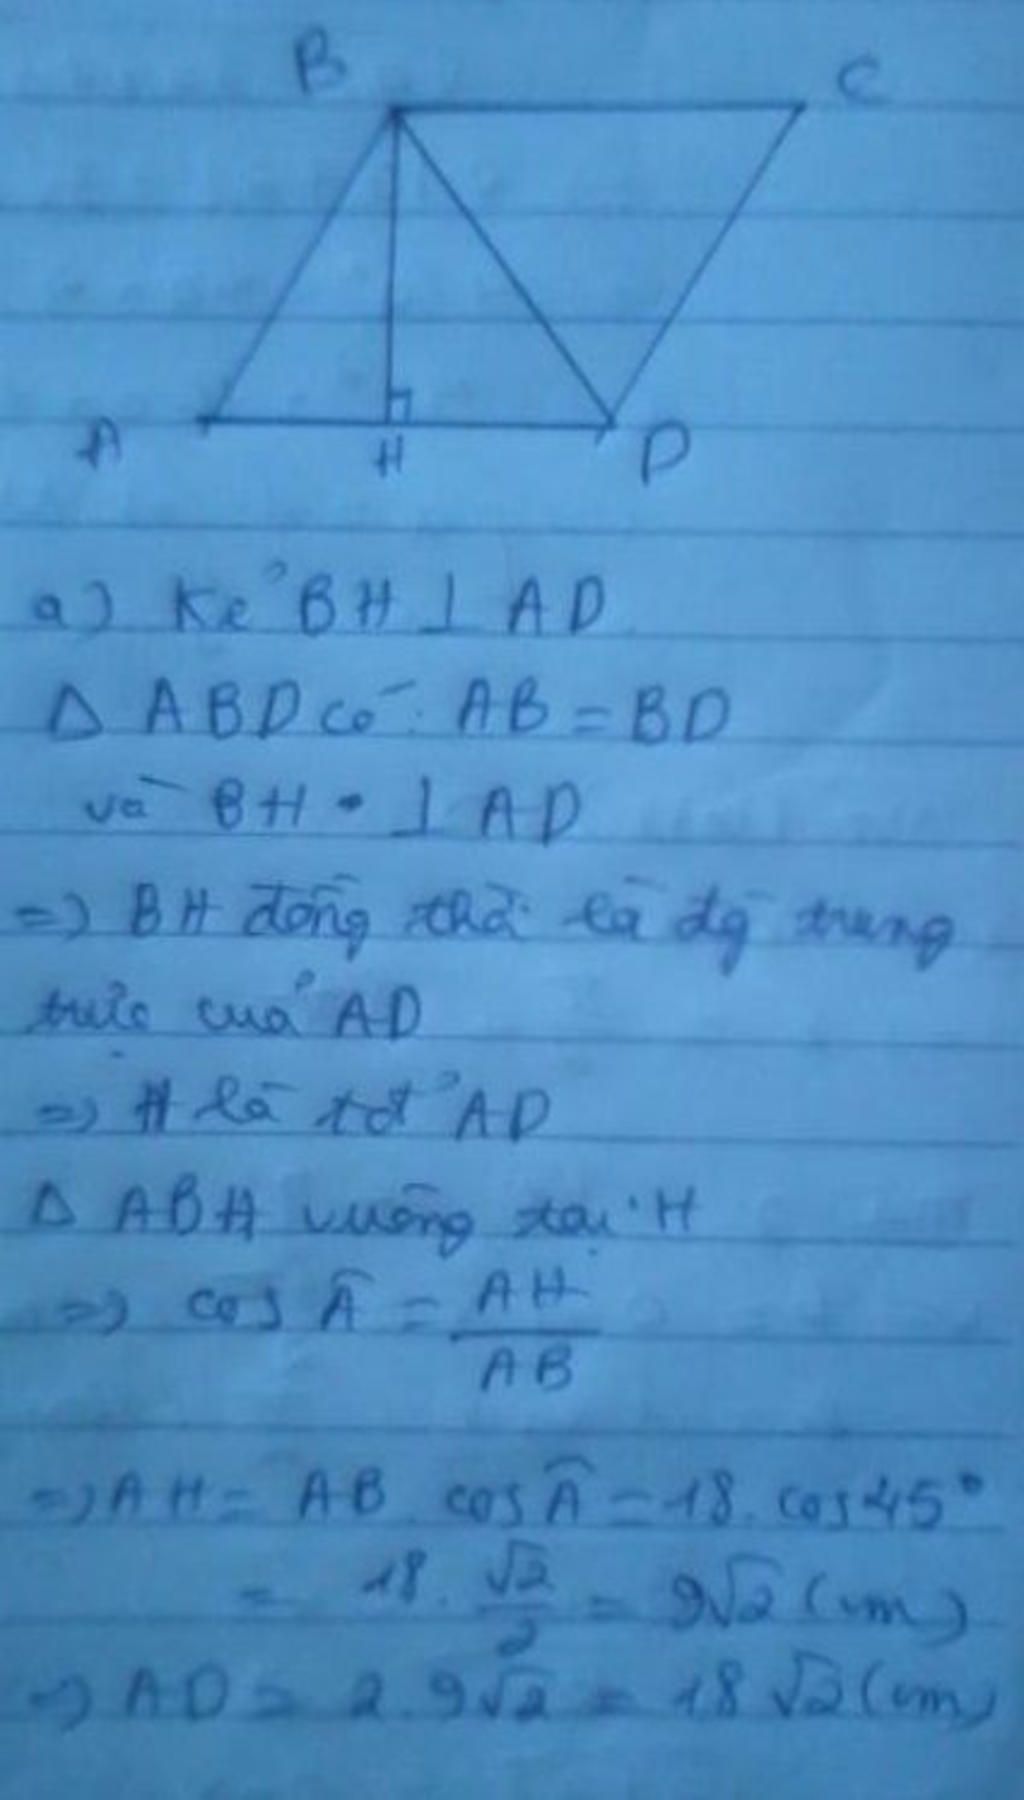 B
C
A
H
D
a) Kẻ BH ⊥ AD
Δ ABD có: AB = BD
và BH ⊥ AD
=> BH đồng thời là đg trung
trực của AD
=> H là tđ AD
Δ ABH vuông tại H
=> cos Â = AH/AB
=> AH = AB . cos Â = 18 . cos 45°
= 18 . √2/2 = 9√2 (cm)
=> AD = 2 . 9√2 = 18√2 (cm)